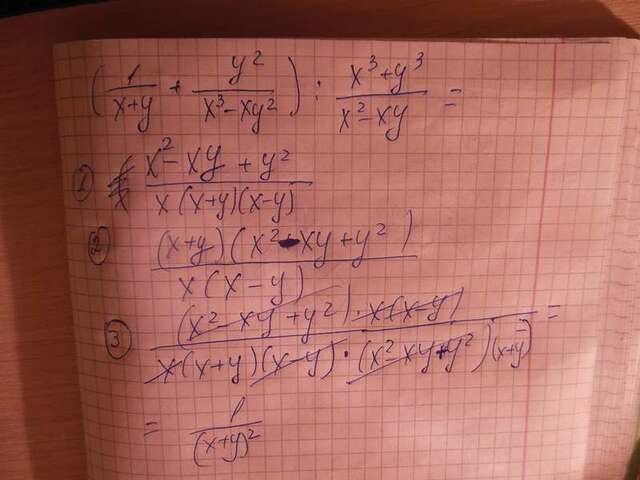 (1/(x+y) + y²/(x³-xy²)) : (x³+y³)/(x²-xy) =
① (x²-xy+y²)/(x(x+y)(x-y))
② ((x+y)(x²-xy+y²))/(x(x-y))
③ ((x²-xy+y²)·x(x-y))/(x(x+y)(x-y)·(x²-xy+y²)(x+y)) =
= 1/(x+y)²